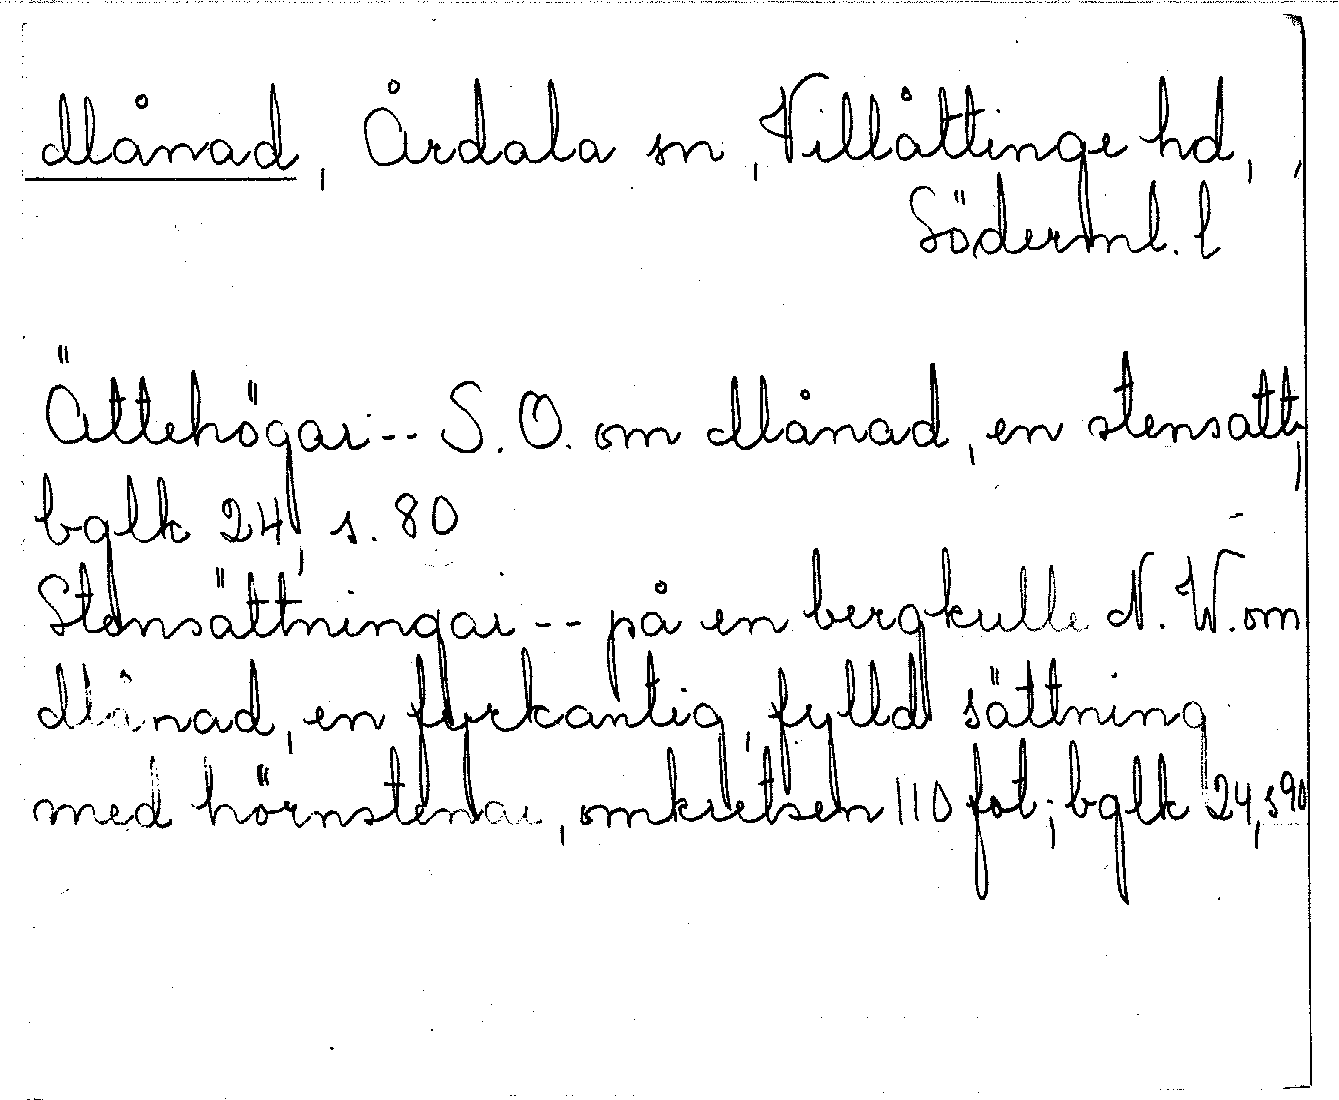 Månad, Årdala sn, Villåttinge hd,
Söderml. l
Ättehögar -- S. O. om Månad, en stensatt;
bglk 24, s. 80
Stensättningar -- på en bergkulle N. W. om
Månad, en fyrkantig, fylld sättning
med hörnstenar, omkretsen 110 fot; bglk 24, s 90